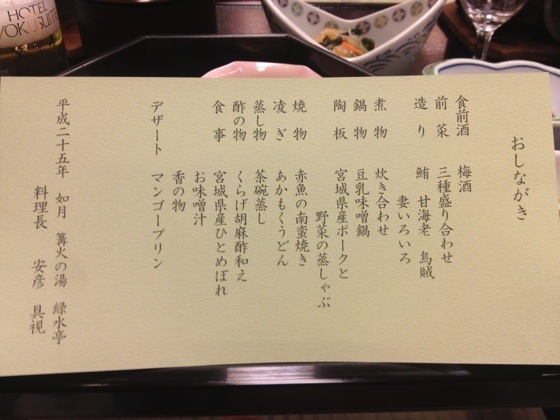 おしながき
食前酒　梅酒
前菜　三種盛り合わせ
造り　鮪　甘海老　烏賊
妻いろいろ
煮物　炊き合わせ
鍋物　豆乳味噌鍋
陶板　宮城県産ポークと
野菜の蒸しゃぶ
焼物　赤魚の南蛮焼き
凌ぎ　あかもくうどん
蒸し物　茶碗蒸し
酢の物　くらげ胡麻酢和え
食事　宮城県産ひとめぼれ
お味噌汁
香の物
デザート　マンゴープリン
平成二十五年　如月　篝火の湯　緑水亭
料理長　安彦　具視
HOTEL